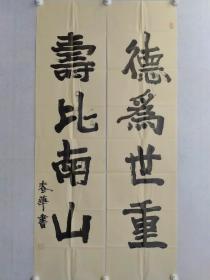 德為世重
壽比南山
春華書